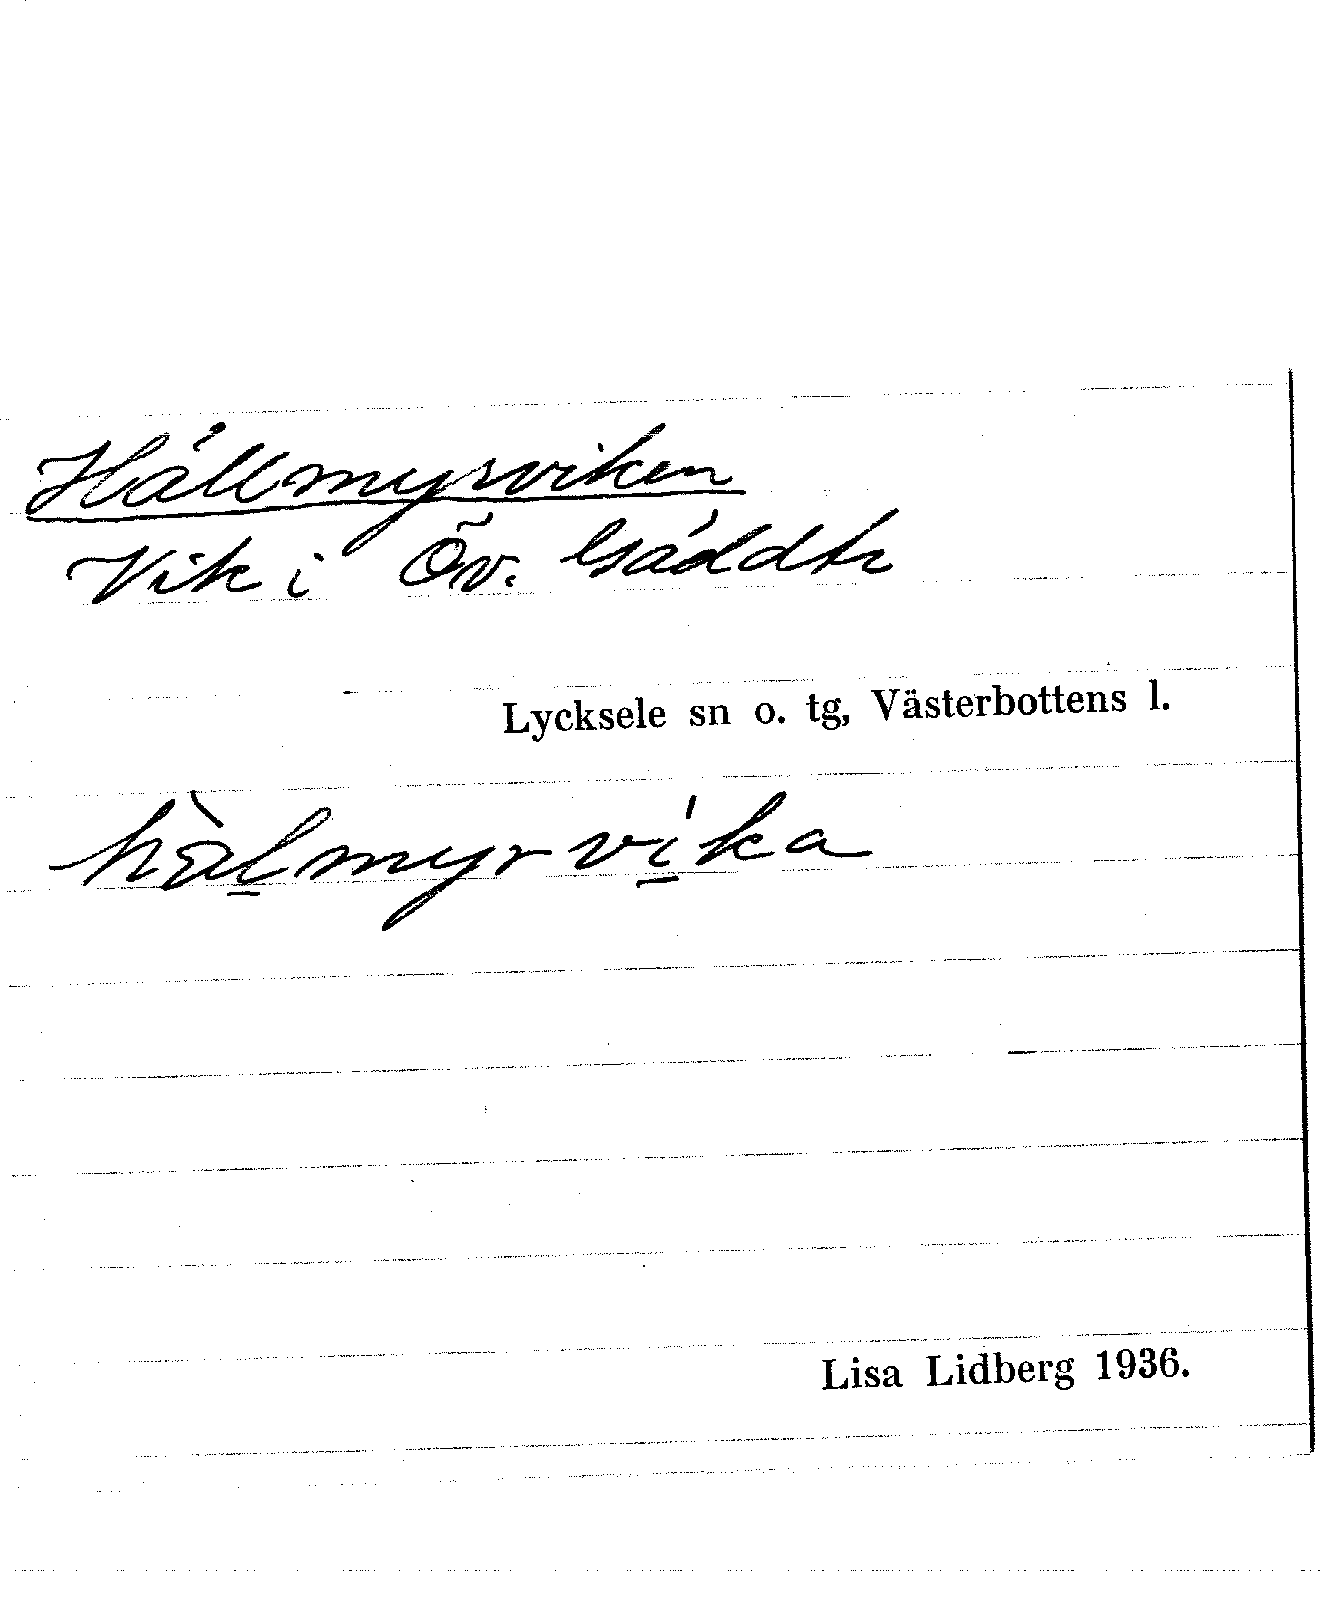 Hållmyrsviken
Vik i Öv. Gäddtr
Lycksele sn o. tg, Västerbottens l.
hàl̲myrví̲ka
Lisa Lidberg 1936.